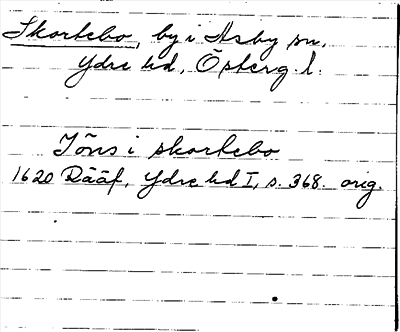 Skortebo, by i Asby sn.
Ydre hd, Österg. l.
Jöns i skortebo
1620 Rääf, Ydre hd I, s. 368. orig.